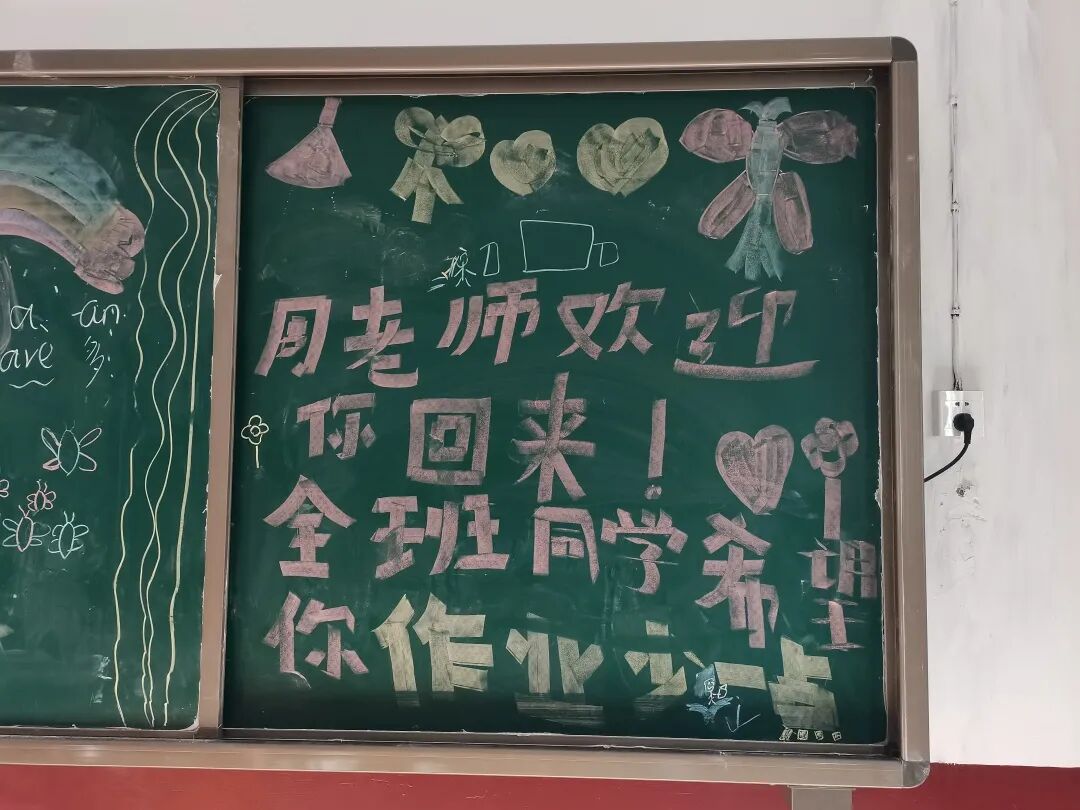 周老师欢迎
你回来！
全班同学希望
你作业少一点
ai an
are